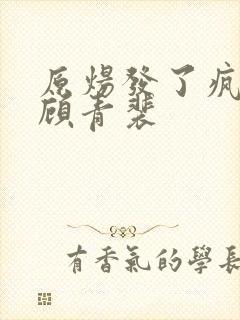 原煬發了瘋
顧青裴
有香氣的學長